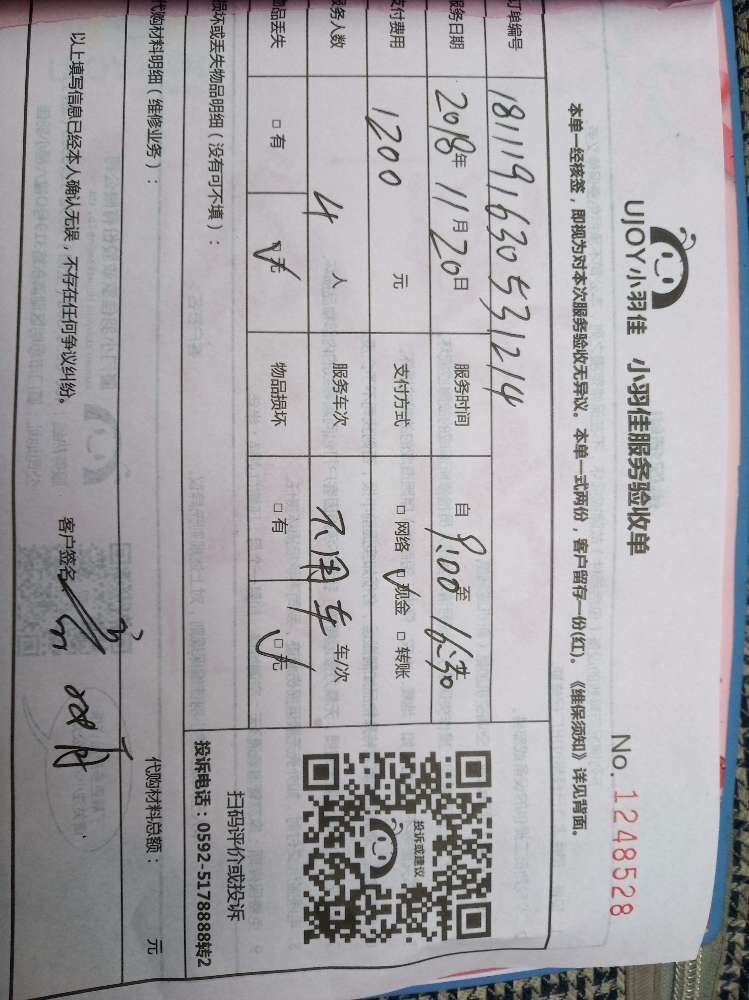 UJOY小羽佳 小羽佳服务验收单
No. 1248528
本单一经核签，即视为对本次服务验收无异议。本单一式两份，客户留存一份(红)。《维保须知》详见背面。
订单编号 1811191630531214
服务日期 2018年11月20日 服务时间 自 9:00 至 16:30
支付费用 1200 元 支付方式 □ 网络 □ 现金 □ 转账
服务人数 4 人 服务车次 不用车 车/次
物品丢失 □ 有 □ 无 物品损坏 □ 有 □ 无
投诉或建议
扫码评价或投诉
投诉电话：0592-5178888转2
损坏或丢失物品明细（没有可不填）：
代购材料明细（维修业务）： 代购材料总额： 元
以上填写信息已经本人确认无误，不存在任何争议纠纷。 客户签名